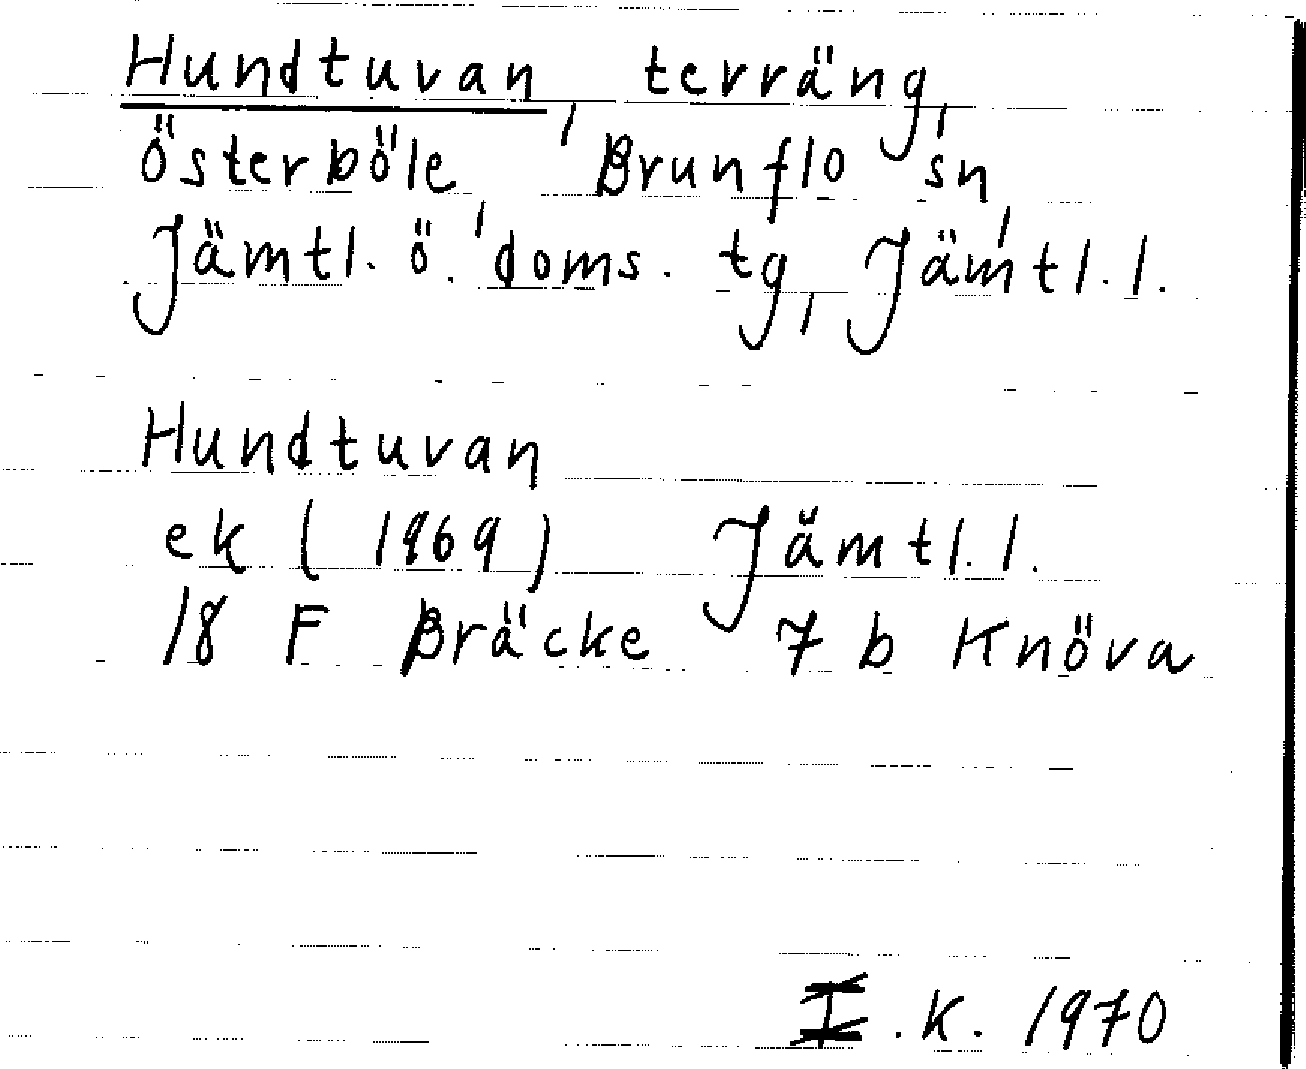 Hundtuvan, terräng,
Österböle, Brunflo sn,
Jämtl. ö. doms. tg, Jämtl. l.
Hundtuvan
ek (1969) Jämtl. l.
18 F Bräcke 7 b Knöva
I. K. 1970